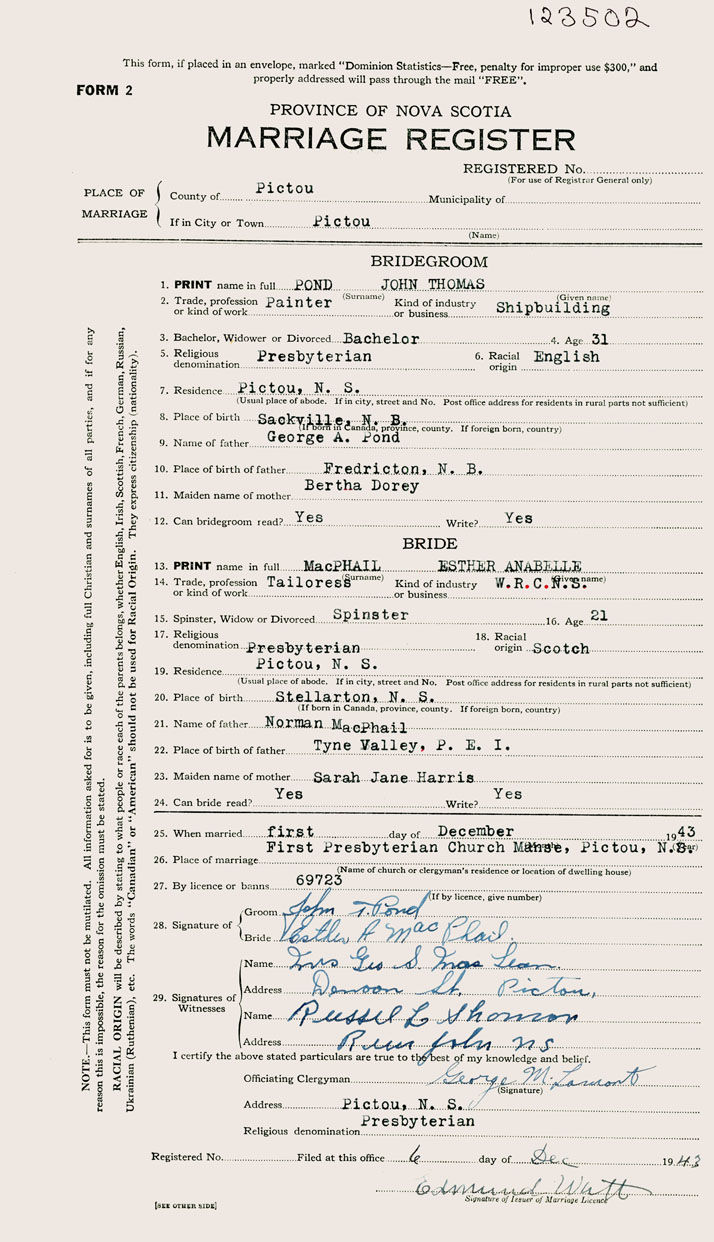 123502
This form, if placed in an envelope, marked "Dominion Statistics—Free, penalty for improper use $300," and
properly addressed will pass through the mail "FREE".
FORM 2
PROVINCE OF NOVA SCOTIA
MARRIAGE REGISTER
REGISTERED No.
(For use of Registrar General only)
PLACE OF MARRIAGE
County of Pictou Municipality of
If in City or Town Pictou
(Name)
BRIDEGROOM
1. PRINT name in full POND JOHN THOMAS
(Surname) (Given name)
2. Trade, profession or kind of work Painter Kind of industry or business Shipbuilding
3. Bachelor, Widower or Divorced Bachelor 4. Age 31
5. Religious denomination Presbyterian 6. Racial origin English
7. Residence Pictou, N. S.
(Usual place of abode. If in city, street and No. Post office address for residents in rural parts not sufficient)
8. Place of birth Sackville, N. B.
(If born in Canada, province, county. If foreign born, country)
9. Name of father George A. Pond
10. Place of birth of father Fredricton, N. B.
11. Maiden name of mother Bertha Dorey
12. Can bridegroom read? Yes Write? Yes
BRIDE
13. PRINT name in full MacPHAIL ESTHER ANABELLE
(Surname) (Given name)
14. Trade, profession or kind of work Tailoress Kind of industry or business W.R.C.N.S.
15. Spinster, Widow or Divorced Spinster 16. Age 21
17. Religious denomination Presbyterian 18. Racial origin Scotch
19. Residence Pictou, N. S.
(Usual place of abode. If in city, street and No. Post office address for residents in rural parts not sufficient)
20. Place of birth Stellarton, N. S.
(If born in Canada, province, county. If foreign born, country)
21. Name of father Norman MacPhail
22. Place of birth of father Tyne Valley, P. E. I.
23. Maiden name of mother Sarah Jane Harris
24. Can bride read? Yes Write? Yes
25. When married first day of December 1943
(Month) (Year)
26. Place of marriage First Presbyterian Church Manse, Pictou, N.S.
(Name of church or clergyman's residence or location of dwelling house)
27. By licence or banns 69723
(If by licence, give number)
28. Signature of
Groom John T. Pond
Bride Esther A MacPhail.
29. Signatures of Witnesses
Name Mrs Geo S. MacLean.
Address Denoon St. Pictou,
Name Russel L
Address River John NS
I certify the above stated particulars are true to the best of my knowledge and belief.
Officiating Clergyman George M. Lamont
(Signature)
Address Pictou, N. S.
Religious denomination Presbyterian
Registered No. Filed at this office 6 day of Dec 1943
Edmund Watt
Signature of Issuer of Marriage Licence
[SEE OTHER SIDE]
NOTE.—This form must not be mutilated. All information asked for is to be given, including full Christian and surnames of all parties, and if for any
reason this is impossible, the reason for the omission must be stated.
RACIAL ORIGIN will be described by stating to what people or race each of the parents belongs, whether English, Irish, Scottish, French, German, Russian,
Ukrainian (Ruthenian), etc. The words "Canadian" or "American" should not be used for Racial Origin. They express citizenship (nationality).